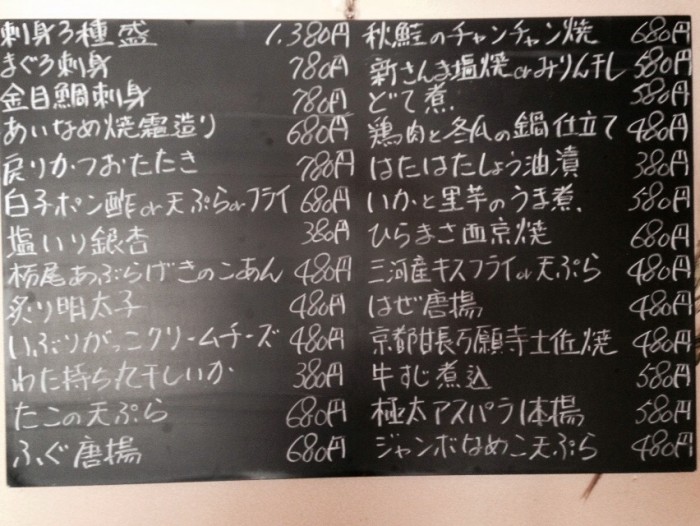 刺身3種盛 1,380円
まぐろ刺身 780円
金目鯛刺身 780円
あいなめ焼霜造り 680円
戻りかつおたたき 780円
白子ポン酢or天ぷらorフライ 680円
塩いり銀杏 380円
栃尾あぶらげきのこあん 480円
炙り明太子 480円
いぶりがっこクリームチーズ 480円
わた持ち丸干しいか 380円
たこの天ぷら 680円
ふぐ唐揚 680円
秋鮭のチャンチャン焼 680円
新さんま塩焼orみりん干し 580円
どて煮 580円
鶏肉と冬瓜の鍋仕立て 480円
はたはたしょう油漬 380円
いかと里芋のうま煮 580円
ひらまさ西京焼 680円
三河産キスフライor天ぷら 480円
はぜ唐揚 480円
京都甘長万願寺土佐焼 480円
牛すじ煮込 580円
極太アスパラ1本揚 580円
ジャンボなめこ天ぷら 480円